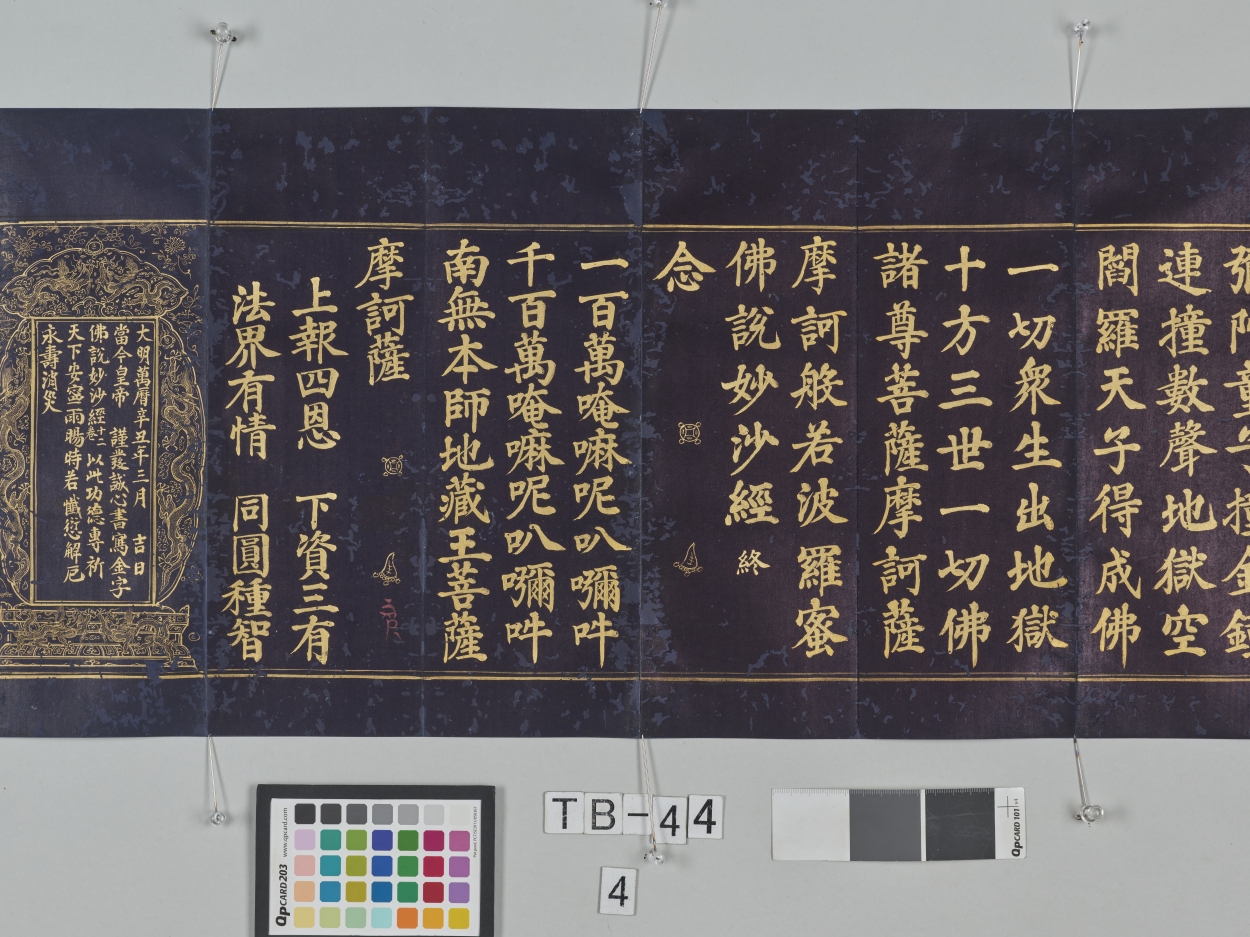 彌陀童子撞金鐘
連撞數聲地獄空
閻羅天子得成佛
一切衆生出地獄
十方三世一切佛
諸尊菩薩摩訶薩
摩訶般若波羅蜜
佛說妙沙經 終
念
一百萬唵嘛呢叭嚩吽
千百萬唵嘛呢叭嚩吽
南無本師地藏王菩薩
摩訶薩
上報四恩 下資三有
法界有情 同圓種智
大明萬曆辛丑年三月 吉日
當今皇帝 謹發誠心書寫金字
佛說妙沙經十二卷以此功德專祈
天下安寧雨暘時若懺愆解厄
永壽消災
TB-44
4
QpCARD 203
www.qpcard.com
QpCARD 101